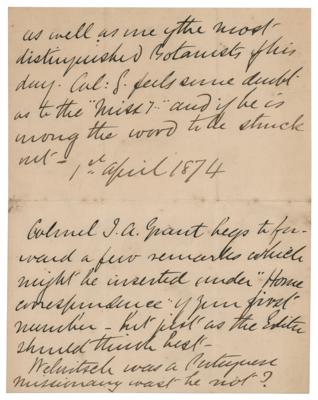 as well as one of the most
distinguished Botanists of his
day. Col: G. feels some doubt
as to the "Miss?" and if he is
wrong the word to be struck
out –
1st April 1874
Colonel J. A. Grant begs to for-
ward a few remarks which
might be inserted under "Home
correspondence" of your first
number – but just as the Editor
should think best –
Welwitsch was a Portuguese
missionary was he not?